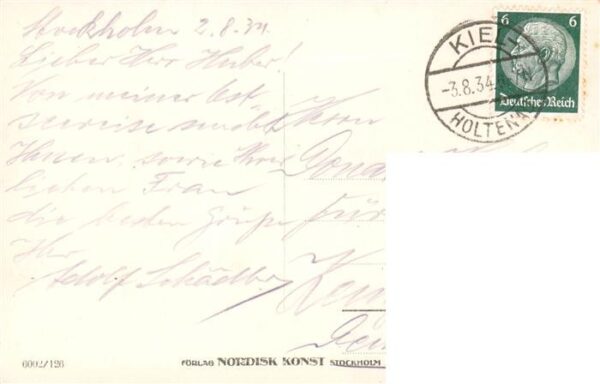 Stockholm 2.8.34.
Lieber Herr Huber!
Von meiner Ost-
seereise sendet
Ihnen, sowie Ihrer
lieben Frau
die besten Grüße
Ihr
Adolf
Herrn
für
KIEL-
-3.8.34
HOLTENA
6 6
Deutsches Reich
6002/126
FÖRLAG NORDISK KONST STOCKHOLM